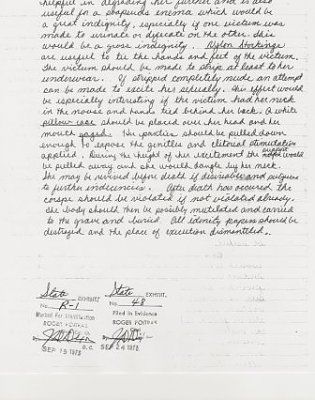 helpful in degrading her further and is also
useful for a soapsuds enema which would be
a great indignity, especially if one victim was
made to urinate or defecate on the other. This
would be a gross indignity. Nylon stockings
are useful to tie the hands and feet of the victim.
The victim should be made to strip at least to her
underwear. If stripped completely nude an attempt
can be made to excite her sexually. This effort would
be especially interesting if the victim had her neck
in the noose and hands tied behind her back. A white
pillow case should be placed over her head and her
mouth gagged. The panties should be pulled down
enough to expose the genitles and clitoral stimulation
applied. During the height of her excitement the support would
be pulled away and she would dangle by her neck.
She may be revived before death if desirable and subjected
to further indecencies. After death has occurred the
corpse should be violated if not violated already.
The body should then be possibly mutilated and carried
to the grave and buried. All identity papers should be
destroyed and the place of execution dismantled.
State EXHIBIT
No. R-1
Marked For Identification
ROGER POITRAS
D.C.
SEP 19 1973
State EXHIBIT.
No. 48
Filed in Evidence
ROGER POITRAS
D.C.
SEP 24 1973